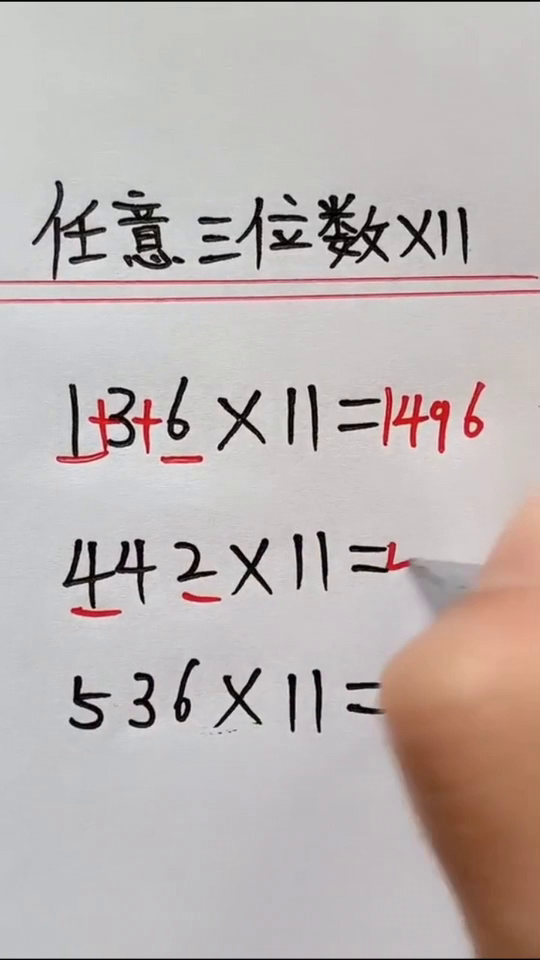 任意三位数×11
1+3+6×11=1496
442×11=
536×11=